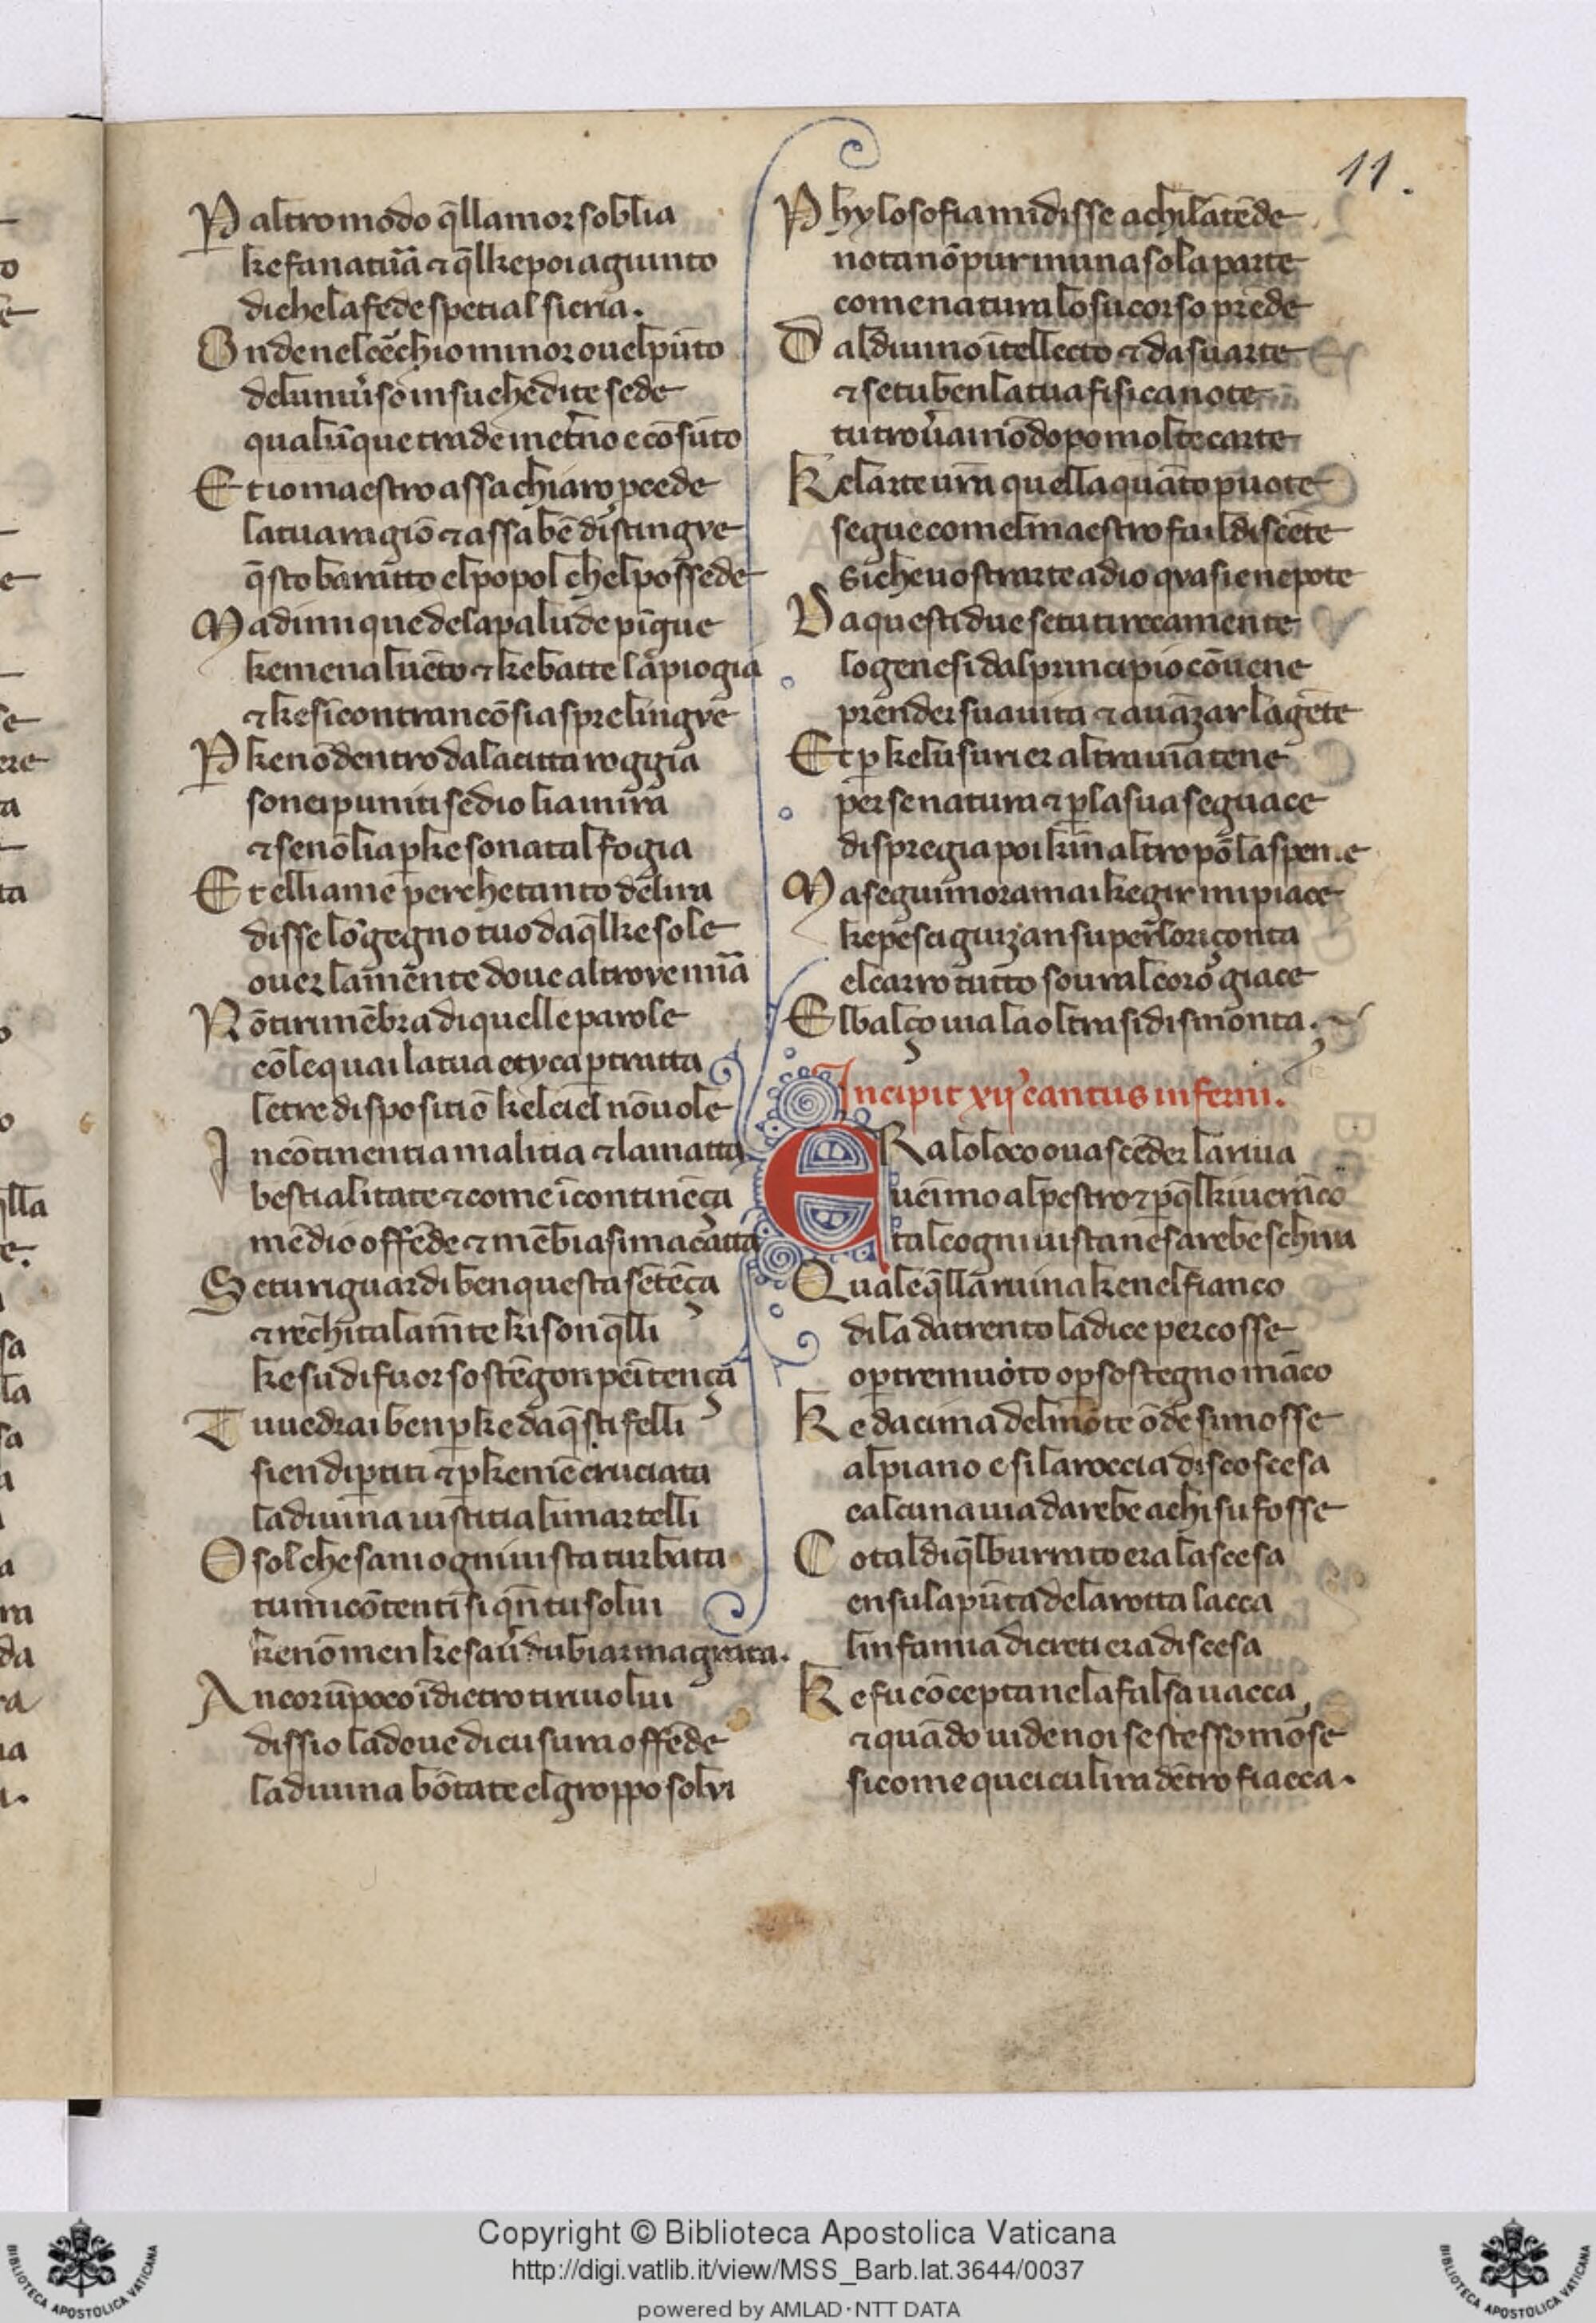 11.
P̄ altro modo q̄llamor soblia
ke fa natura ⁊ q̄l ke poi agiunto
di che la fede spetial si cria.
Onde nel cērchio minor ouel pūto
de luniuˀso in su che dite sede
qualūque trade in etˀno e cōsūto
Et io maestro assa chiaro p̱cede
la tua ragiō ⁊ assa bē distingve
q̄sto baratro el popol chel possede
Ma dimi que de la palude pīgue
ke mena luēto ⁊ ke batte la piogia
⁊ ke sicontran cō si aspre lingve
P̄ ke nō dentro da la citta roggia
son ei puniti se dio lia in ira
⁊ se nō lia p̱ke son a tal fogia
Et elli a me perche tanto delira
disse lo gegno tuo da q̄l ke sole
ouer la mente doue altrove mira
Nō ti rimēbra di quelle parole
cō le quai la tua etyca p̱tratta
le tre dispositiō kel ciel nō uole
Incōtinentia malitia ⁊ la matta
bestialitate ⁊ come īcontinēça
mē dio offēde ⁊ mē biasim acatta
Se tu riguardi ben questa sētēça
⁊ rechiti ala mīte ki son q̄lli
ke su di fuor sostēgon peītença
Tu uedrai ben p̱ke da q̄sti felli
sien dip̱titi ⁊ p̱ke mē cruciata
la diuina iustitia li martelli
O sol che sani ogni uista turbata
tu mi cōtenti si qn̄ tu solui
ke nō men ke sauˀ dubiar magrata.
Ancor ū poco īdietro ti riuolui
dissio la doue di cusura offēde
la diuina bōtate el groppo solvi
Phylosofia mi disse a chi la tēde
nota nō pur in una sola parte
come natura lo su corso prēde
Dal diuino ītellecto ⁊ da su arte
⁊ se tu ben la tua fisica note
tu trouˀai nō dopo molte carte
Ke larte ur̄a quella quāto puote
segue comel maestro fa il discēte
si che uostrarte a dio qvasi e nepote
Da questi due se tu ti reca mente
lo genesi dal principio cōuene
prender sua uita ⁊ auāzar la gēte
Et p̱ke lusurier altra uia tene
per se natura ⁊ p̱ la sua seguace
dispregia poi kin altro pō la spene
Ma seguim ora mai kel gir mi piace
ke pesci guizan su per loriçonta
el carro tutto soural coro giace
El balço uia la oltra si dismonta.
Incipit xij cantus inferni.
ERa lo loco oua scēder la riua
ueimo alpestro ⁊ p̱ q̄l kiuer āco
tal cogni uista ne sarebe schiua
Quale q̄lla ruina ke nel fianco
di la da trento ladice percosse
o p̱ tremuoto o p̱ sostegno māco
Ke da cima del mōte ōde si mosse
al piano e si la roccia discoscesa
calcuna uia darebe a chi su fosse
Cotal di q̄l burrato era la scesa
en su la pūta de la rotta lacca
linfamia di creti era discesa
Ke fu cōcepta ne la falsa uacca
⁊ quādo uide noi se stesso morse
si come quei cui lira dētro fiacca.
Copyright © Biblioteca Apostolica Vaticana
http://digi.vatlib.it/view/MSS_Barb.lat.3644/0037
powered by AMLAD·NTT DATA
BIBLIOTECA APOSTOLICA VATICANA
BIBLIOTECA APOSTOLICA VATICANA